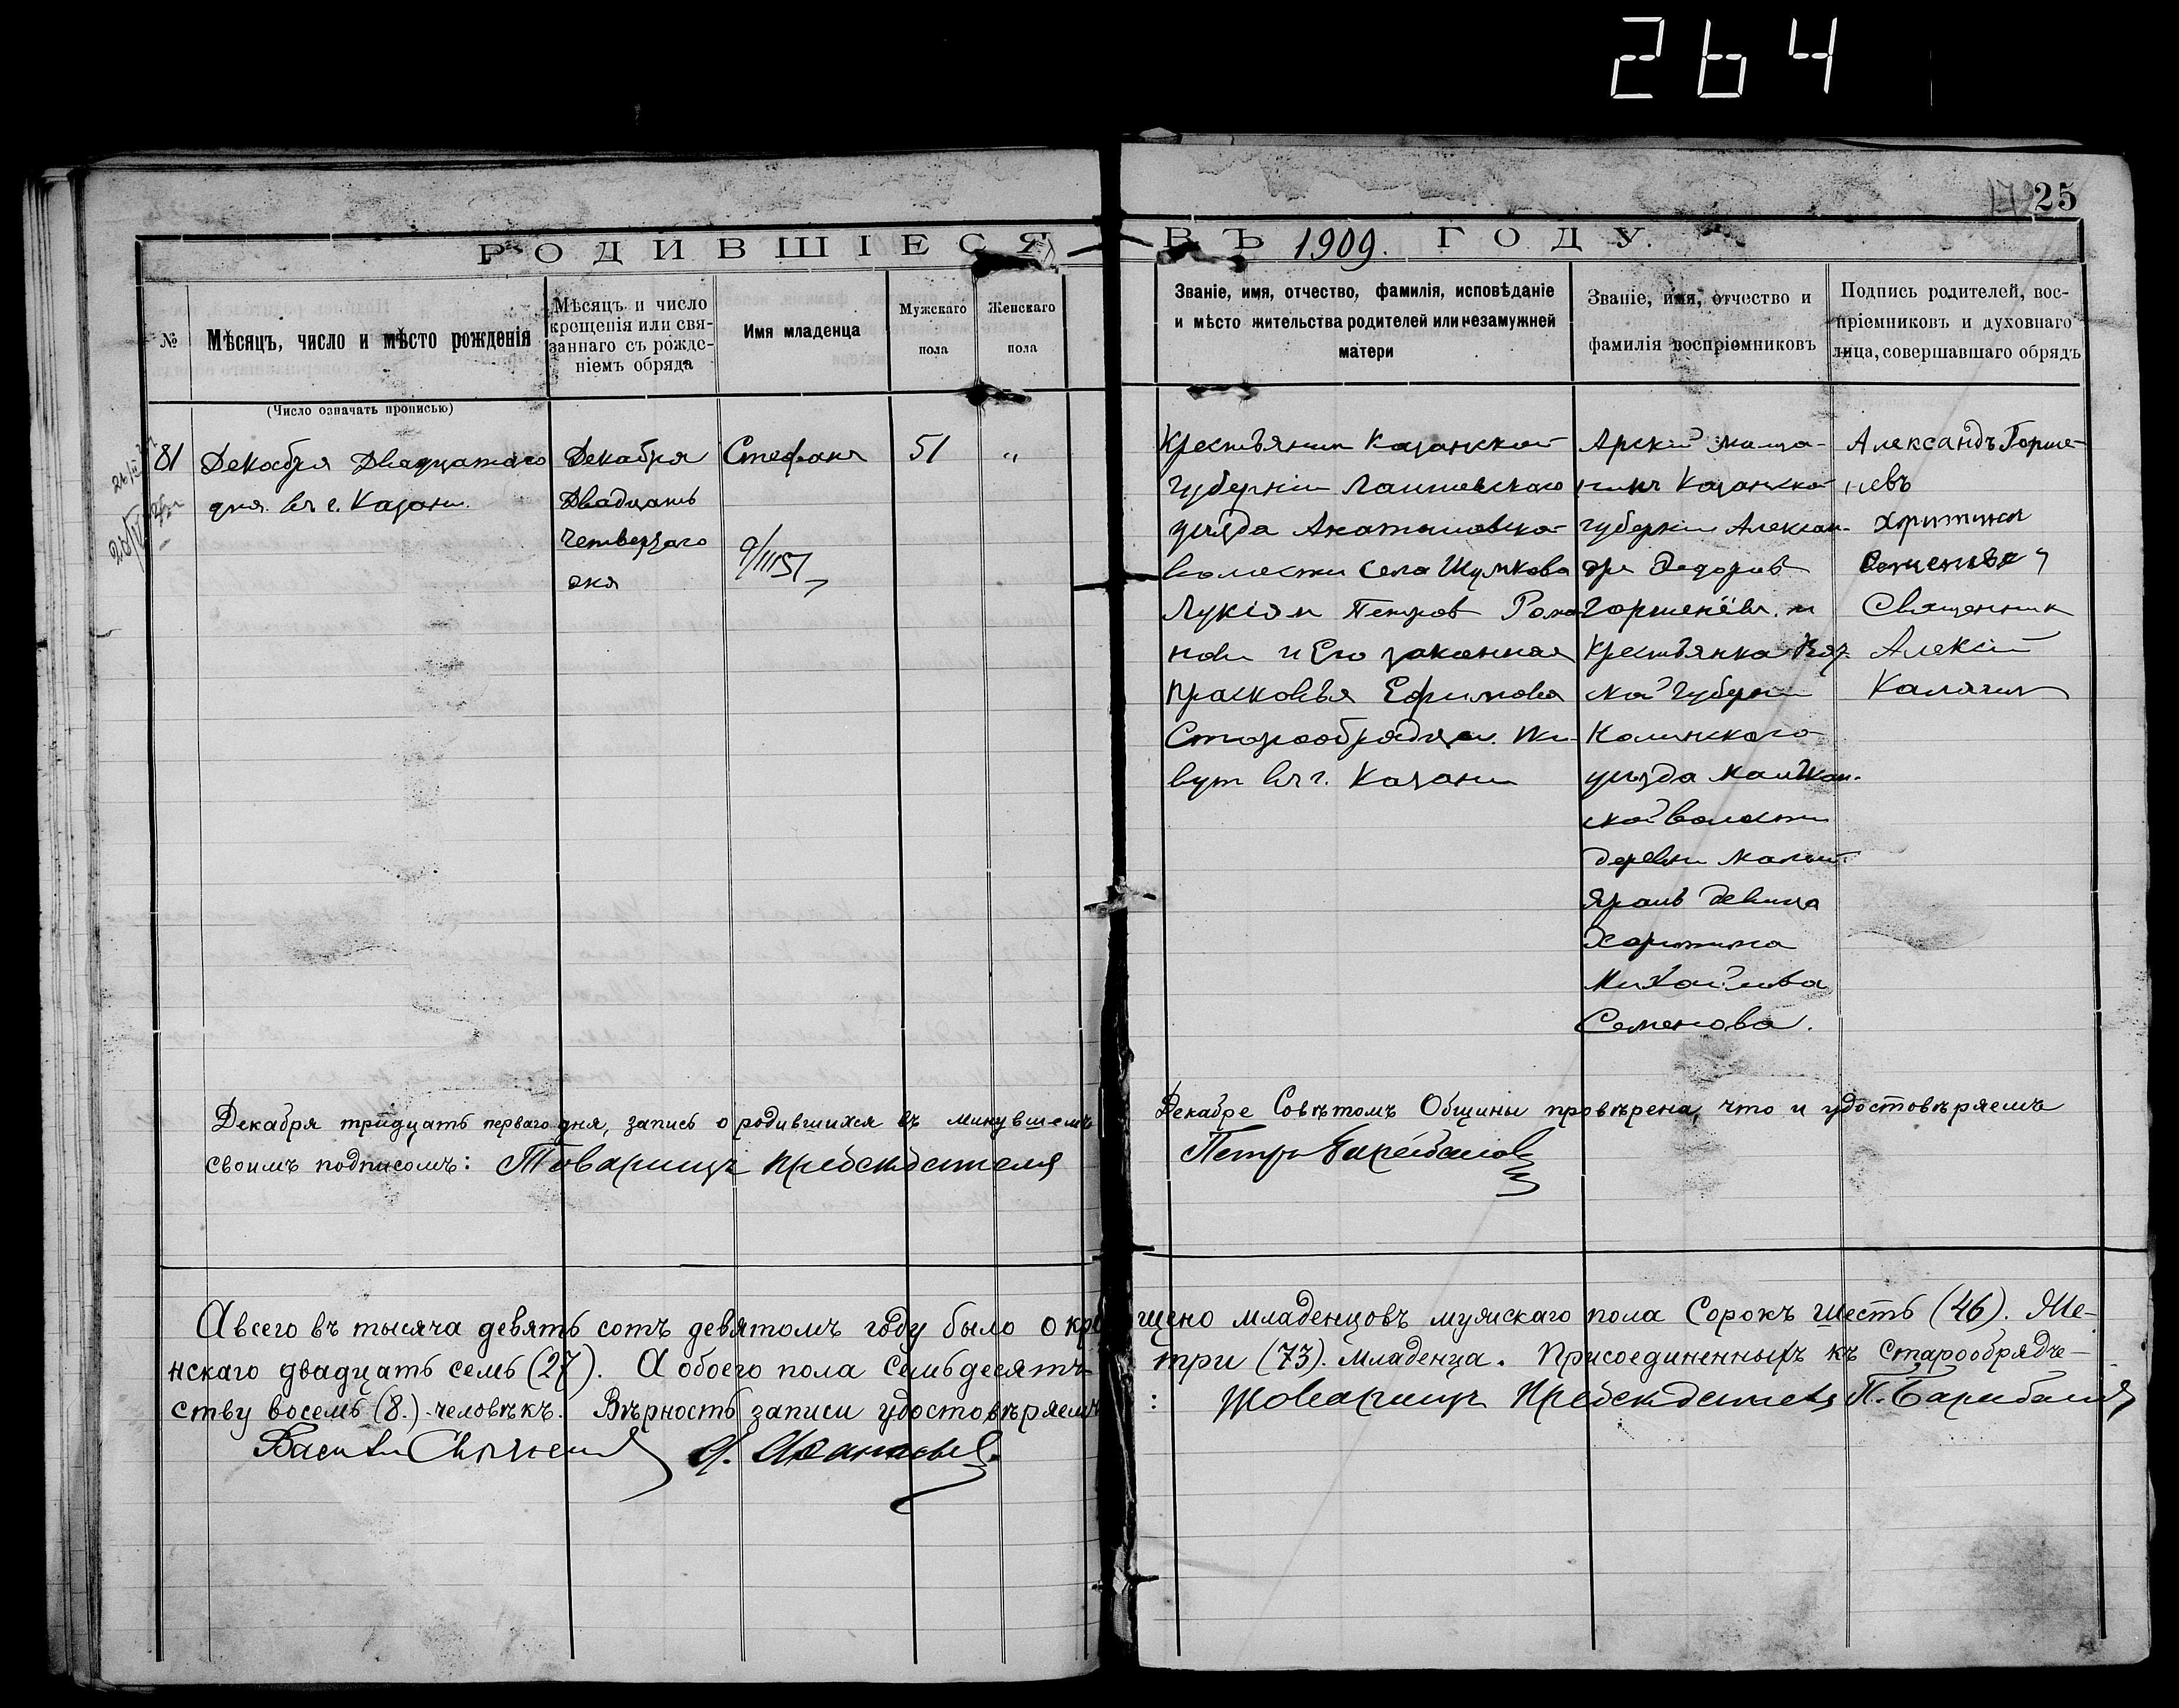 264
25
РОДИВШІЕСЯ ВЪ 1909. ГОДУ.
№
Мѣсяцъ, число и мѣсто рожденія
Мѣсяцъ и число
крещенія или свя-
заннаго съ рожде-
ніемъ обряда
Имя младенца
Мужскаго
пола
Женскаго
пола
Званіе, имя, отчество, фамилія, исповѣданіе
и мѣсто жительства родителей или незамужней
матери
Званіе, имя, отчество и
фамилія воспріемниковъ
Подпись родителей, вос-
пріемниковъ и духовнаго
лица, совершавшаго обрядъ
(Число означать прописью)
81
Декабря Двадцатаго
дня въ г. Казани.
Декабря
Двадцать
Четвертаго
дня
Стефанъ
51
„
Крестьянин Казанской
губерніи Лаишевскаго
уѣзда
волости села Шумкова
Лукіян Петров Рома
нов и Его законная
Прасковья Ефимова
Старообрядцы. Жи-
вут въ г. Казани
Арскій мѣща-
нинъ Казанской
губерніи Алексан-
др Федоров
Горшенёвъ и
Крестьянка
ской губерніи
уѣзда
ской волости
деревни
девица
Харитина
Михайлова
Семенова.
Александъ Горше-
невъ
Священник
Алексій
Калягин
Декабря тридцать перваго дня, запись о родившихся въ минувшемъ Декабре Совѣтомъ Общины провѣрена, что и удостовѣряемъ
своимъ подписомъ: Товарищъ председателя Петръ
А всего въ тысяча девять сотъ девятомъ году было о крещено младенцовъ мужскаго пола Сорокъ шесть (46). Же-
нскаго двадцать семь (27). А обоего пола семьдесятъ три (73). младенца. Присоединенныхъ къ Старообрядче-
ству восемь (8.) человѣкъ. Вѣрность записи удостовѣряемъ: Товарищъ Председателя П.